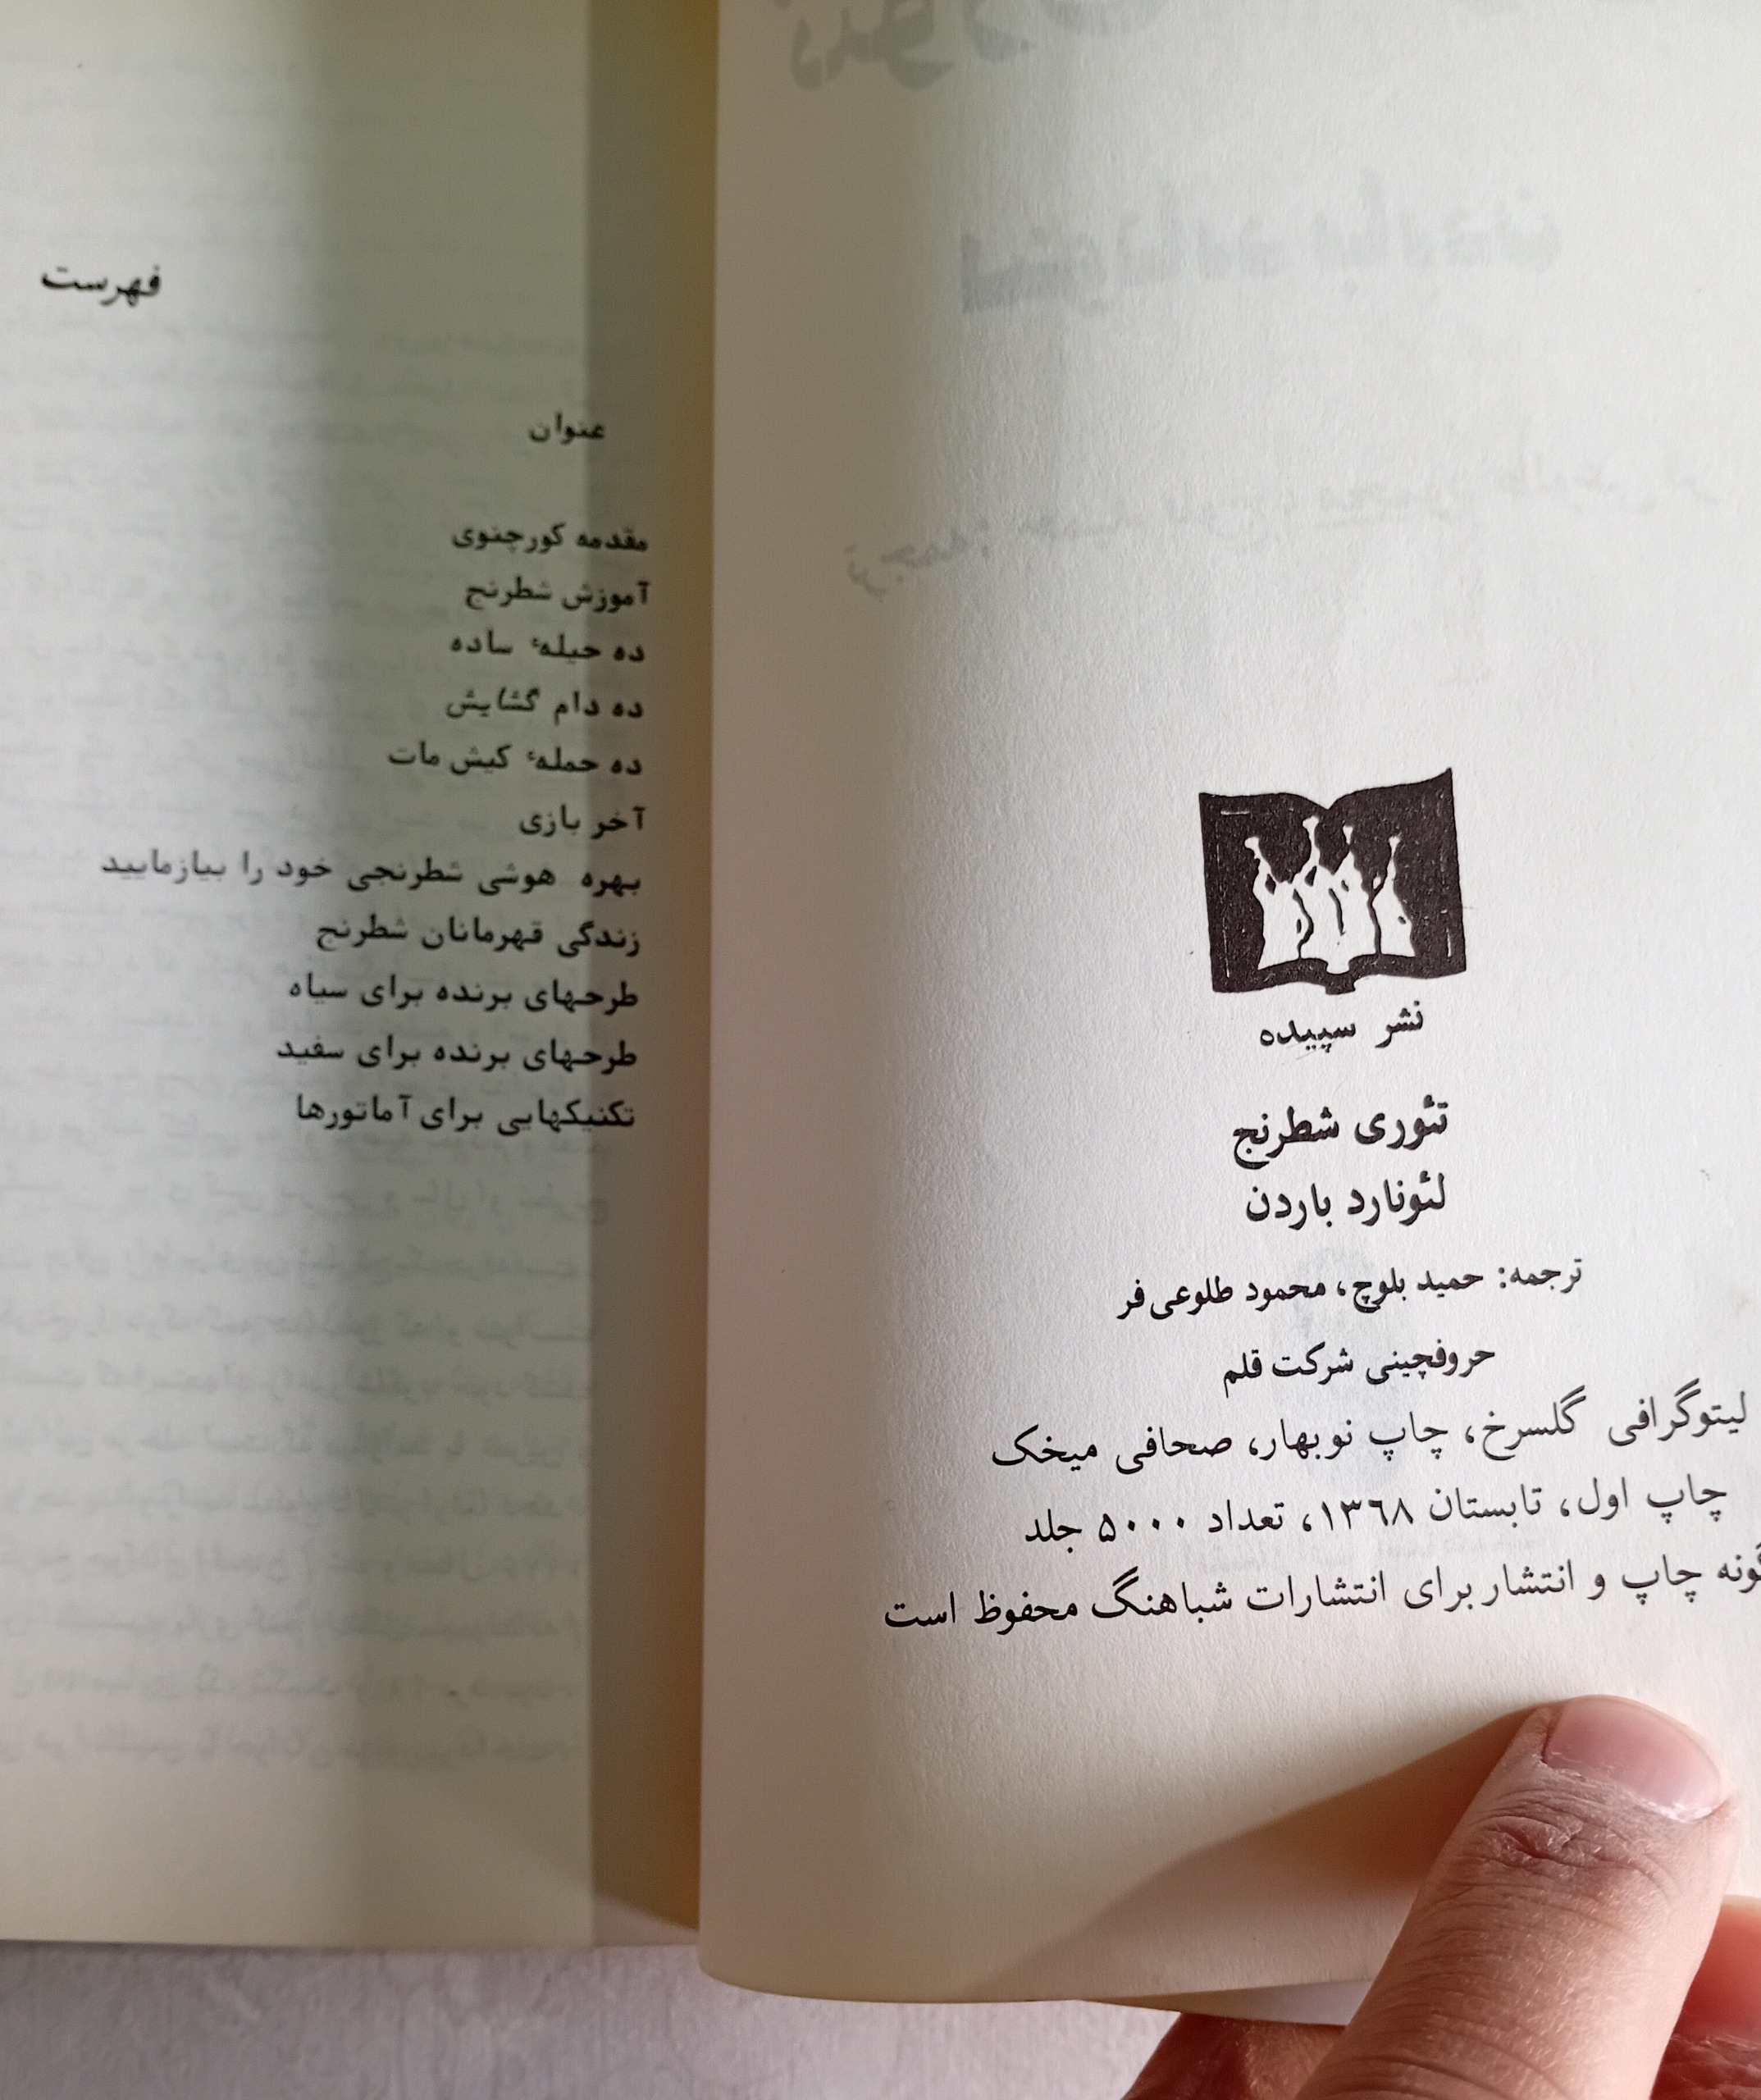 نشر سپیده
تئوری شطرنج
لئونارد باردن
ترجمه: حمید بلوچ، محمود طلوعی‌فر
حروفچینی شرکت قلم
لیتوگرافی گلسرخ، چاپ نوبهار، صحافی میخک
چاپ اول، تابستان ۱۳۶۸، تعداد ۵۰۰۰ جلد
چاپ و انتشار برای انتشارات شباهنگ محفوظ است
فهرست
عنوان
مقدمه کورچنوی
آموزش شطرنج
ده حیلهٔ ساده
ده دام گشایش
ده حملهٔ کیش مات
آخر بازی
بهره هوشی شطرنجی خود را بیازمایید
زندگی قهرمانان شطرنج
طرحهای برنده برای سیاه
طرحهای برنده برای سفید
تکنیکهایی برای آماتورها